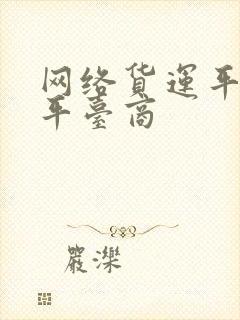 网络货运平
平臺商
嚴濼